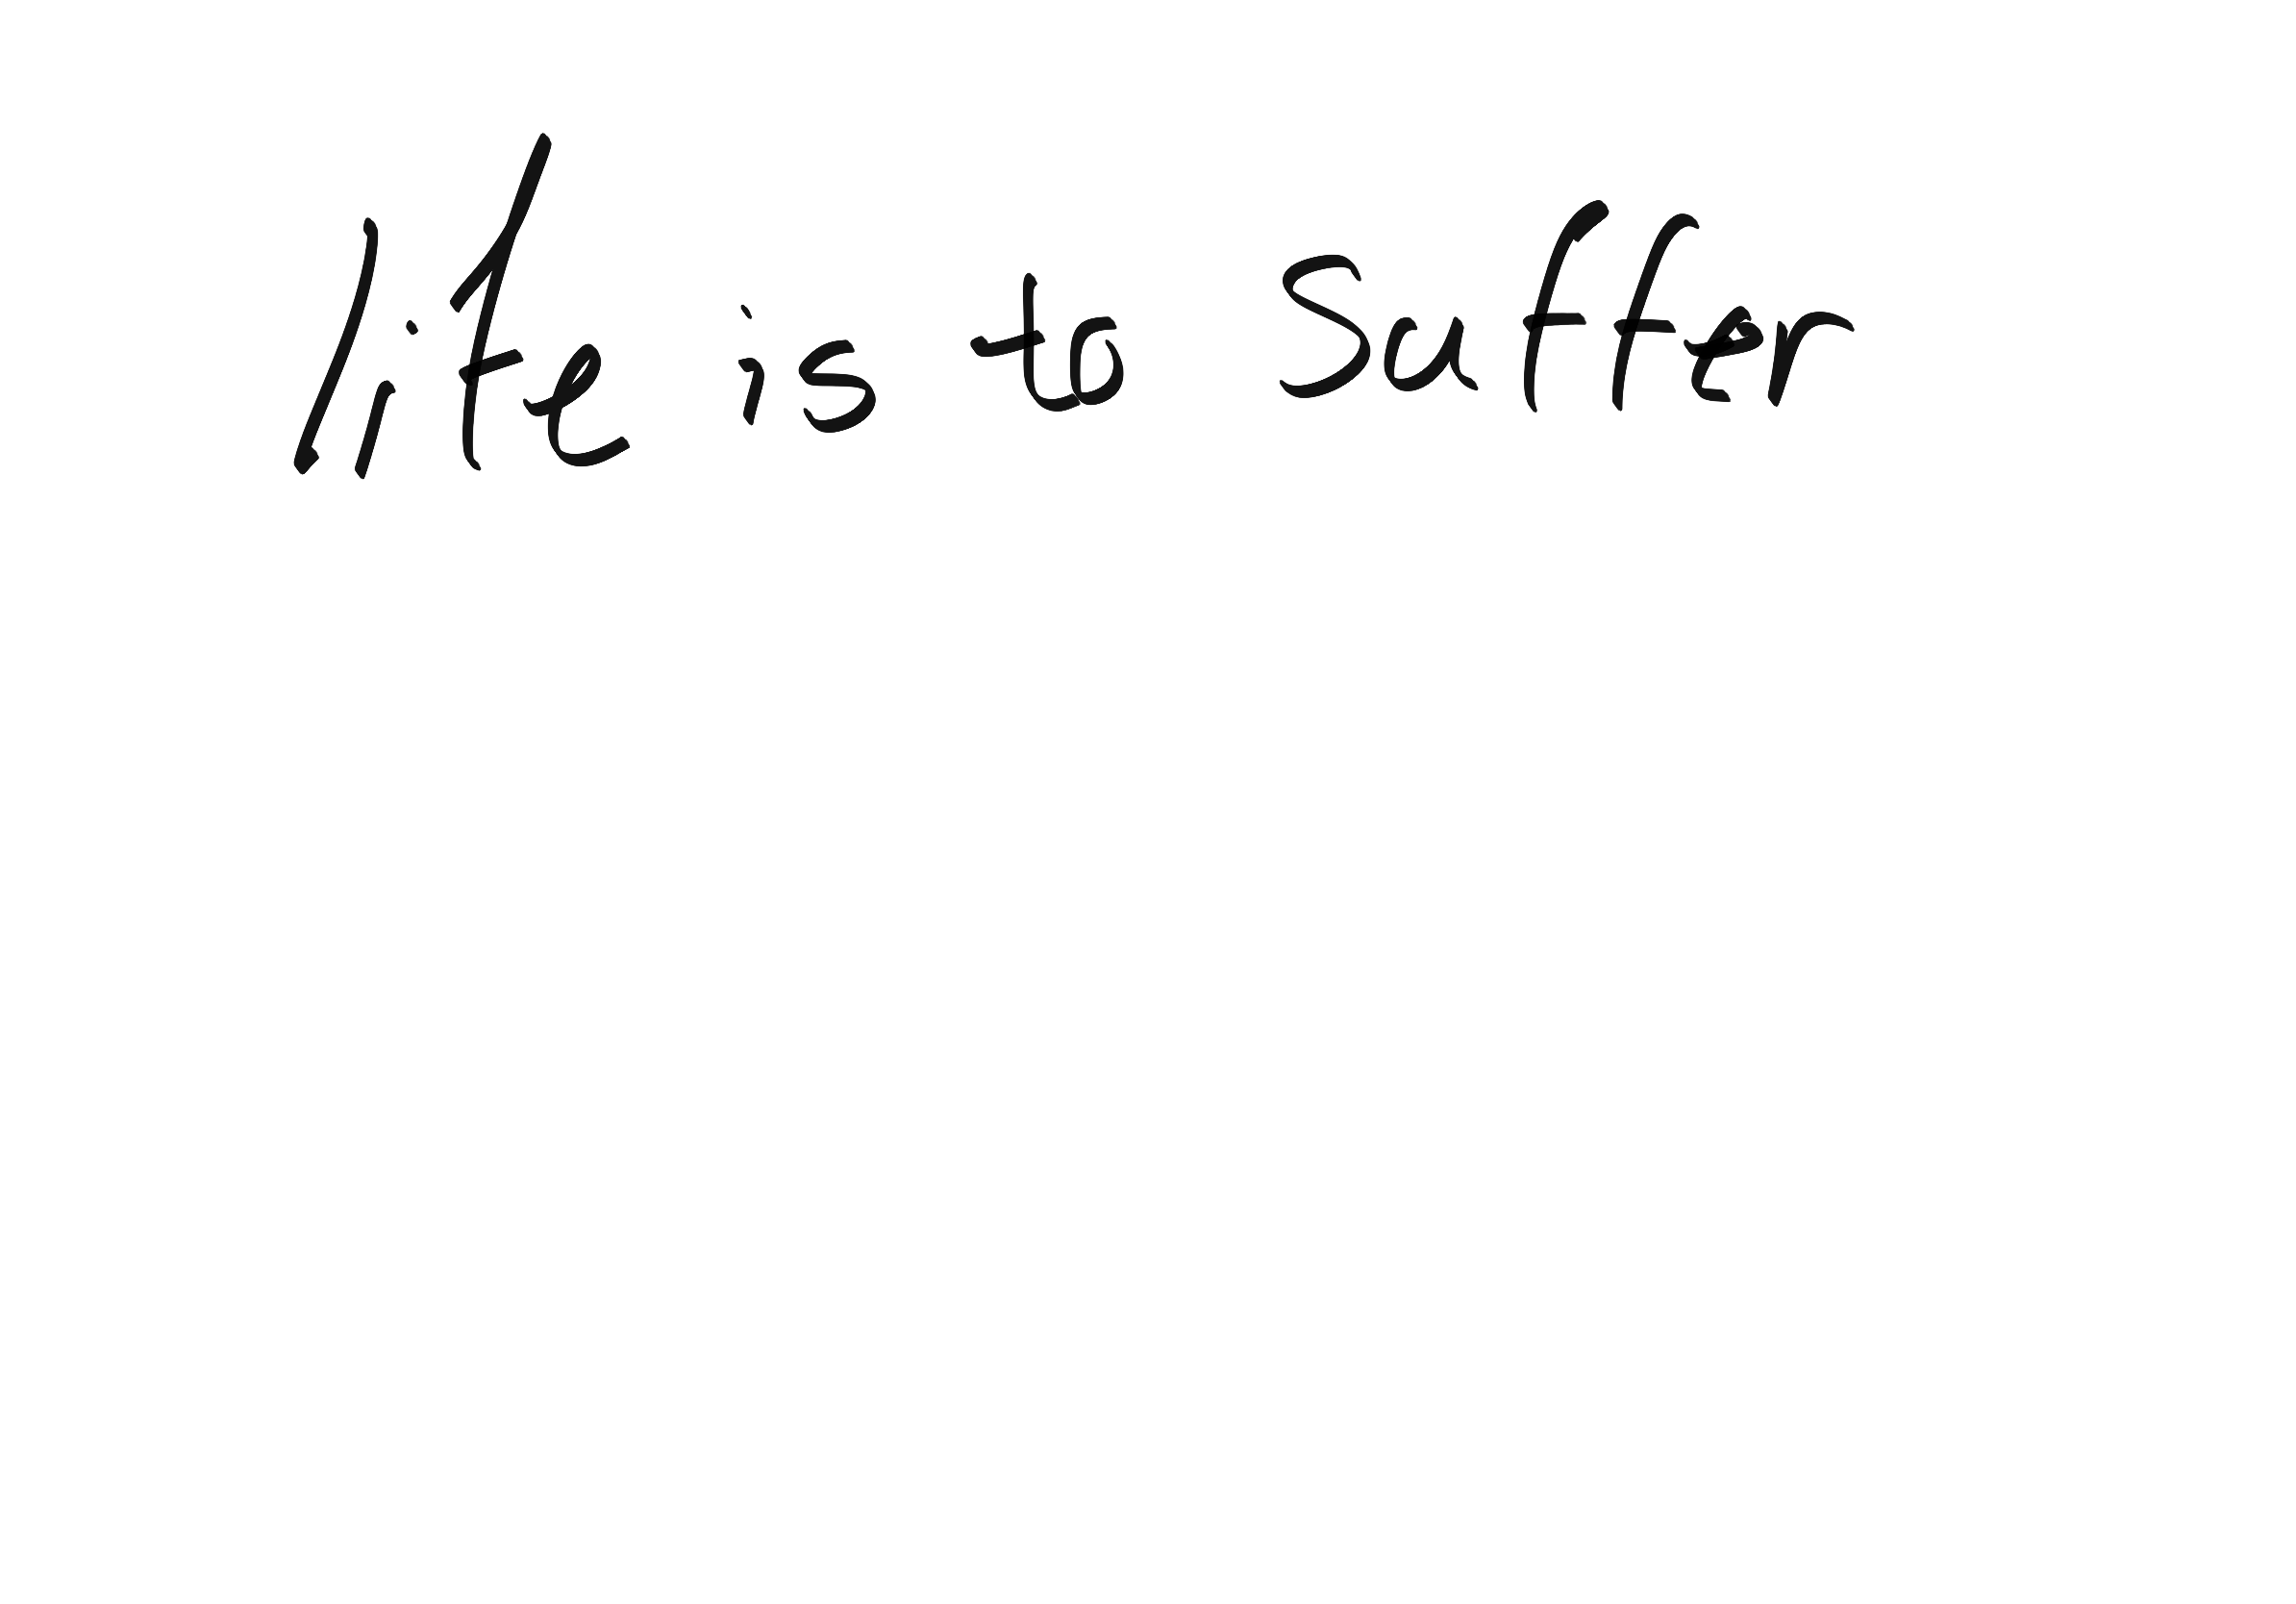 life is to Suffer